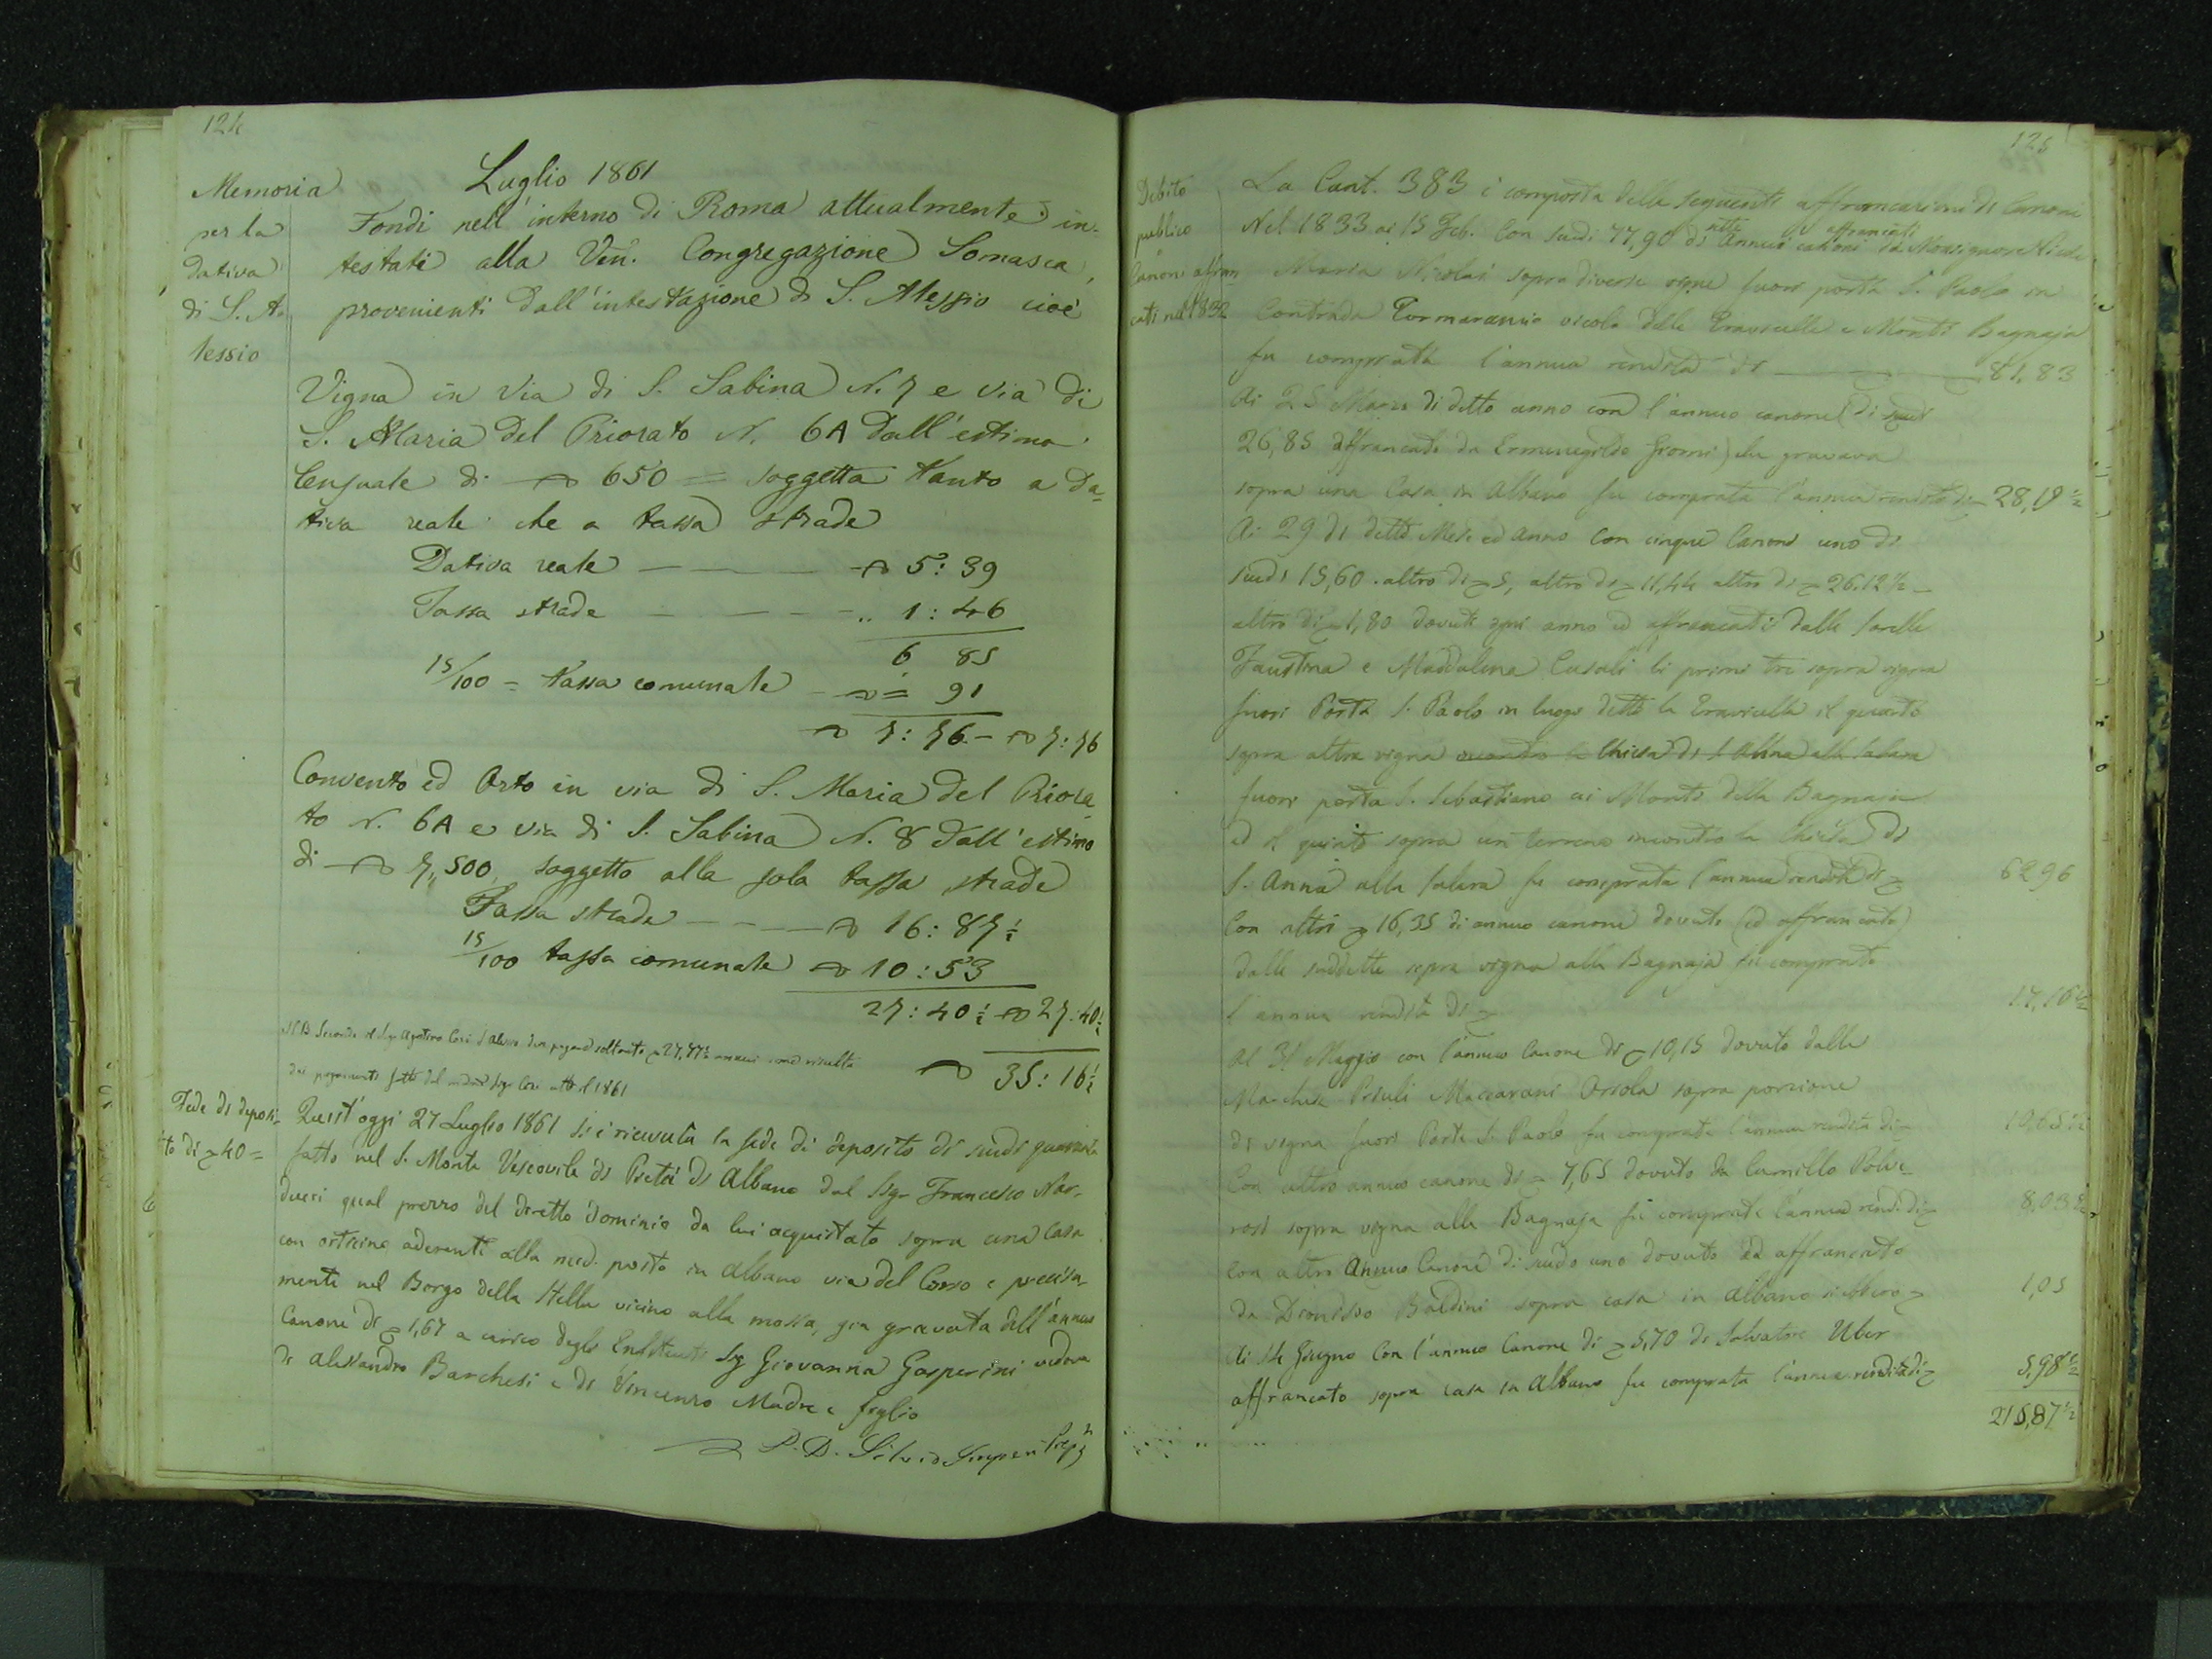 124
Luglio 1861
Memoria
per la
dativa
di S. A-
lessio
Fondi nell' interno di Roma attualmente in-
testati alla Ven. Congregazione Somasca,
provenienti dall' intestazione di S. Alessio cioè
Vigna in Via di S. Sabina N. 7 e via di
S. Maria del Priorato N. 6A dall' estimo
Censuale di 650 = soggetta tanto a da-
tiva reale che a tassa strade
Dativa reale — 5: 39
Tassa strade — 1: 46
6 85
15/100 = tassa comunale = 91
7: 76 - 7: 76
Convento ed Orto in via di S. Maria del Priora
to N. 6A e via di S. Sabina N. 8 dall' estimo
di 7,500, soggetto alla sola tassa strade
Tassa strade — 16: 87 ½
15/100 tassa comunale 10: 53
27: 40 ½ 27: 40 ½
35: 16 ½
NB Secondo il Sig. Agostino Cori S. Alessio deve pagare soltanto 27,77½ annui come risulta
dai pagamenti fatti dal Sig. Cori 1861
Fede di deposi-
to di 40 =
Quest' oggi 27 Luglio 1861 si è ricevuta la fede di deposito di scudi quaranta
fatto nel S. Monte Vescovile di Pietà di Albano dal Sigr Francesco Nar-
ducci qual prezzo del diretto dominio da lui acquistato sopra una Casa
con orticino aderente alla med. posto in Albano via del Corso e precisa-
mente nel Borgo della Stella vicino alla mossa, già gravata dell' annuo
Canone di 1,67 a carico degli Enfiteuti Sig Giovanna Gasperini vedova
di Alessandro Barchesi e di Vincenzo Madre e figlio
P. D. Silvio Imperi
125
Debito
publico
Canoni affran
cati nel 1832
La Cart. 383 è composta delle seguenti affrancazioni di Canoni
Nel 1833 ai 15 Feb. Con scudi 77,90 di annui canoni affrancati da Monsignore
Maria Nicolai sopra diverse vigne fuori porta S. Paolo in
Contrada Tormarancio vicolo delle Travicelle e Monti Bagnaja
fu comprata l'annua rendita di — 81,83
Ai 25 Marzo di detto anno con l'annuo canone (di scudi
26,85 affrancato da Ermenegildo Giorni) che gravava
sopra una Casa in Albano fu comprata l'annua rendita di 28,19 ½
Ai 29 di detto Mese ed anno Con cinque Canoni uno di
scudi 15,60. altro di 5, altro di 11,44 altro di 26.12 ½
altro di 1,80 dovuti ogni anno ed affrancati dalle sorelle
Faustina e Maddalena Casali li primi tre sopra vigna
fuori Porta S. Paolo in luogo detto la Travicella il quarto
sopra altra vigna incontro la Chiesa di S. Anna alla Salara
fuori porta S. Sebastiano ai Monti della Bagnaja
ed il quinto sopra un terreno incontro la Chiesa di
S. Anna alla Salara fu comprata l'annua rendita di 62 96
Con altri 16,35 di annuo canone dovuto (ed affrancato)
dalle suddette sopra vigna alla Bagnaja fu comprata
l'annua rendita di 17,16 ½
Al 31 Maggio con l'annuo Canone di 10,15 dovuto dalla
Marchesa Maccarani Orsola sopra porzione
di vigna fuori Porta S. Paolo fu comprata l'annua rendita di 10,65 ½
Con altro annuo canone di 7,65 dovuto da Camillo Polve-
rosi sopra vigna alla Bagnaja fu comprata l'annua rend. di 8,03 ½
Con altro Annuo Canone di scudo uno dovuto ed affrancato
da Dionisio Baldini sopra casa in Albano si ebbero 1,05
Ai 14 Giugno Con l'annuo Canone di 5,70 di Salvatore Uber
affrancato sopra casa in Albano fu comprata l'annua rendita di 5,98 ½
215,87 ½